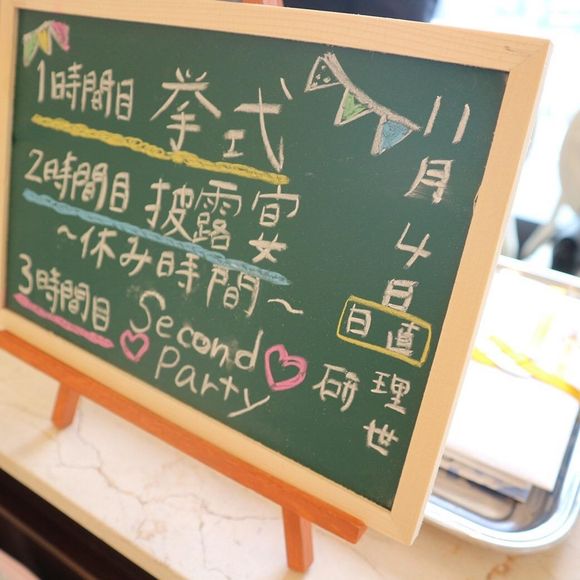 1時間目 挙式
2時間目 披露宴
～休み時間～
3時間目 Second
Party
11月4日
日直
理世
研